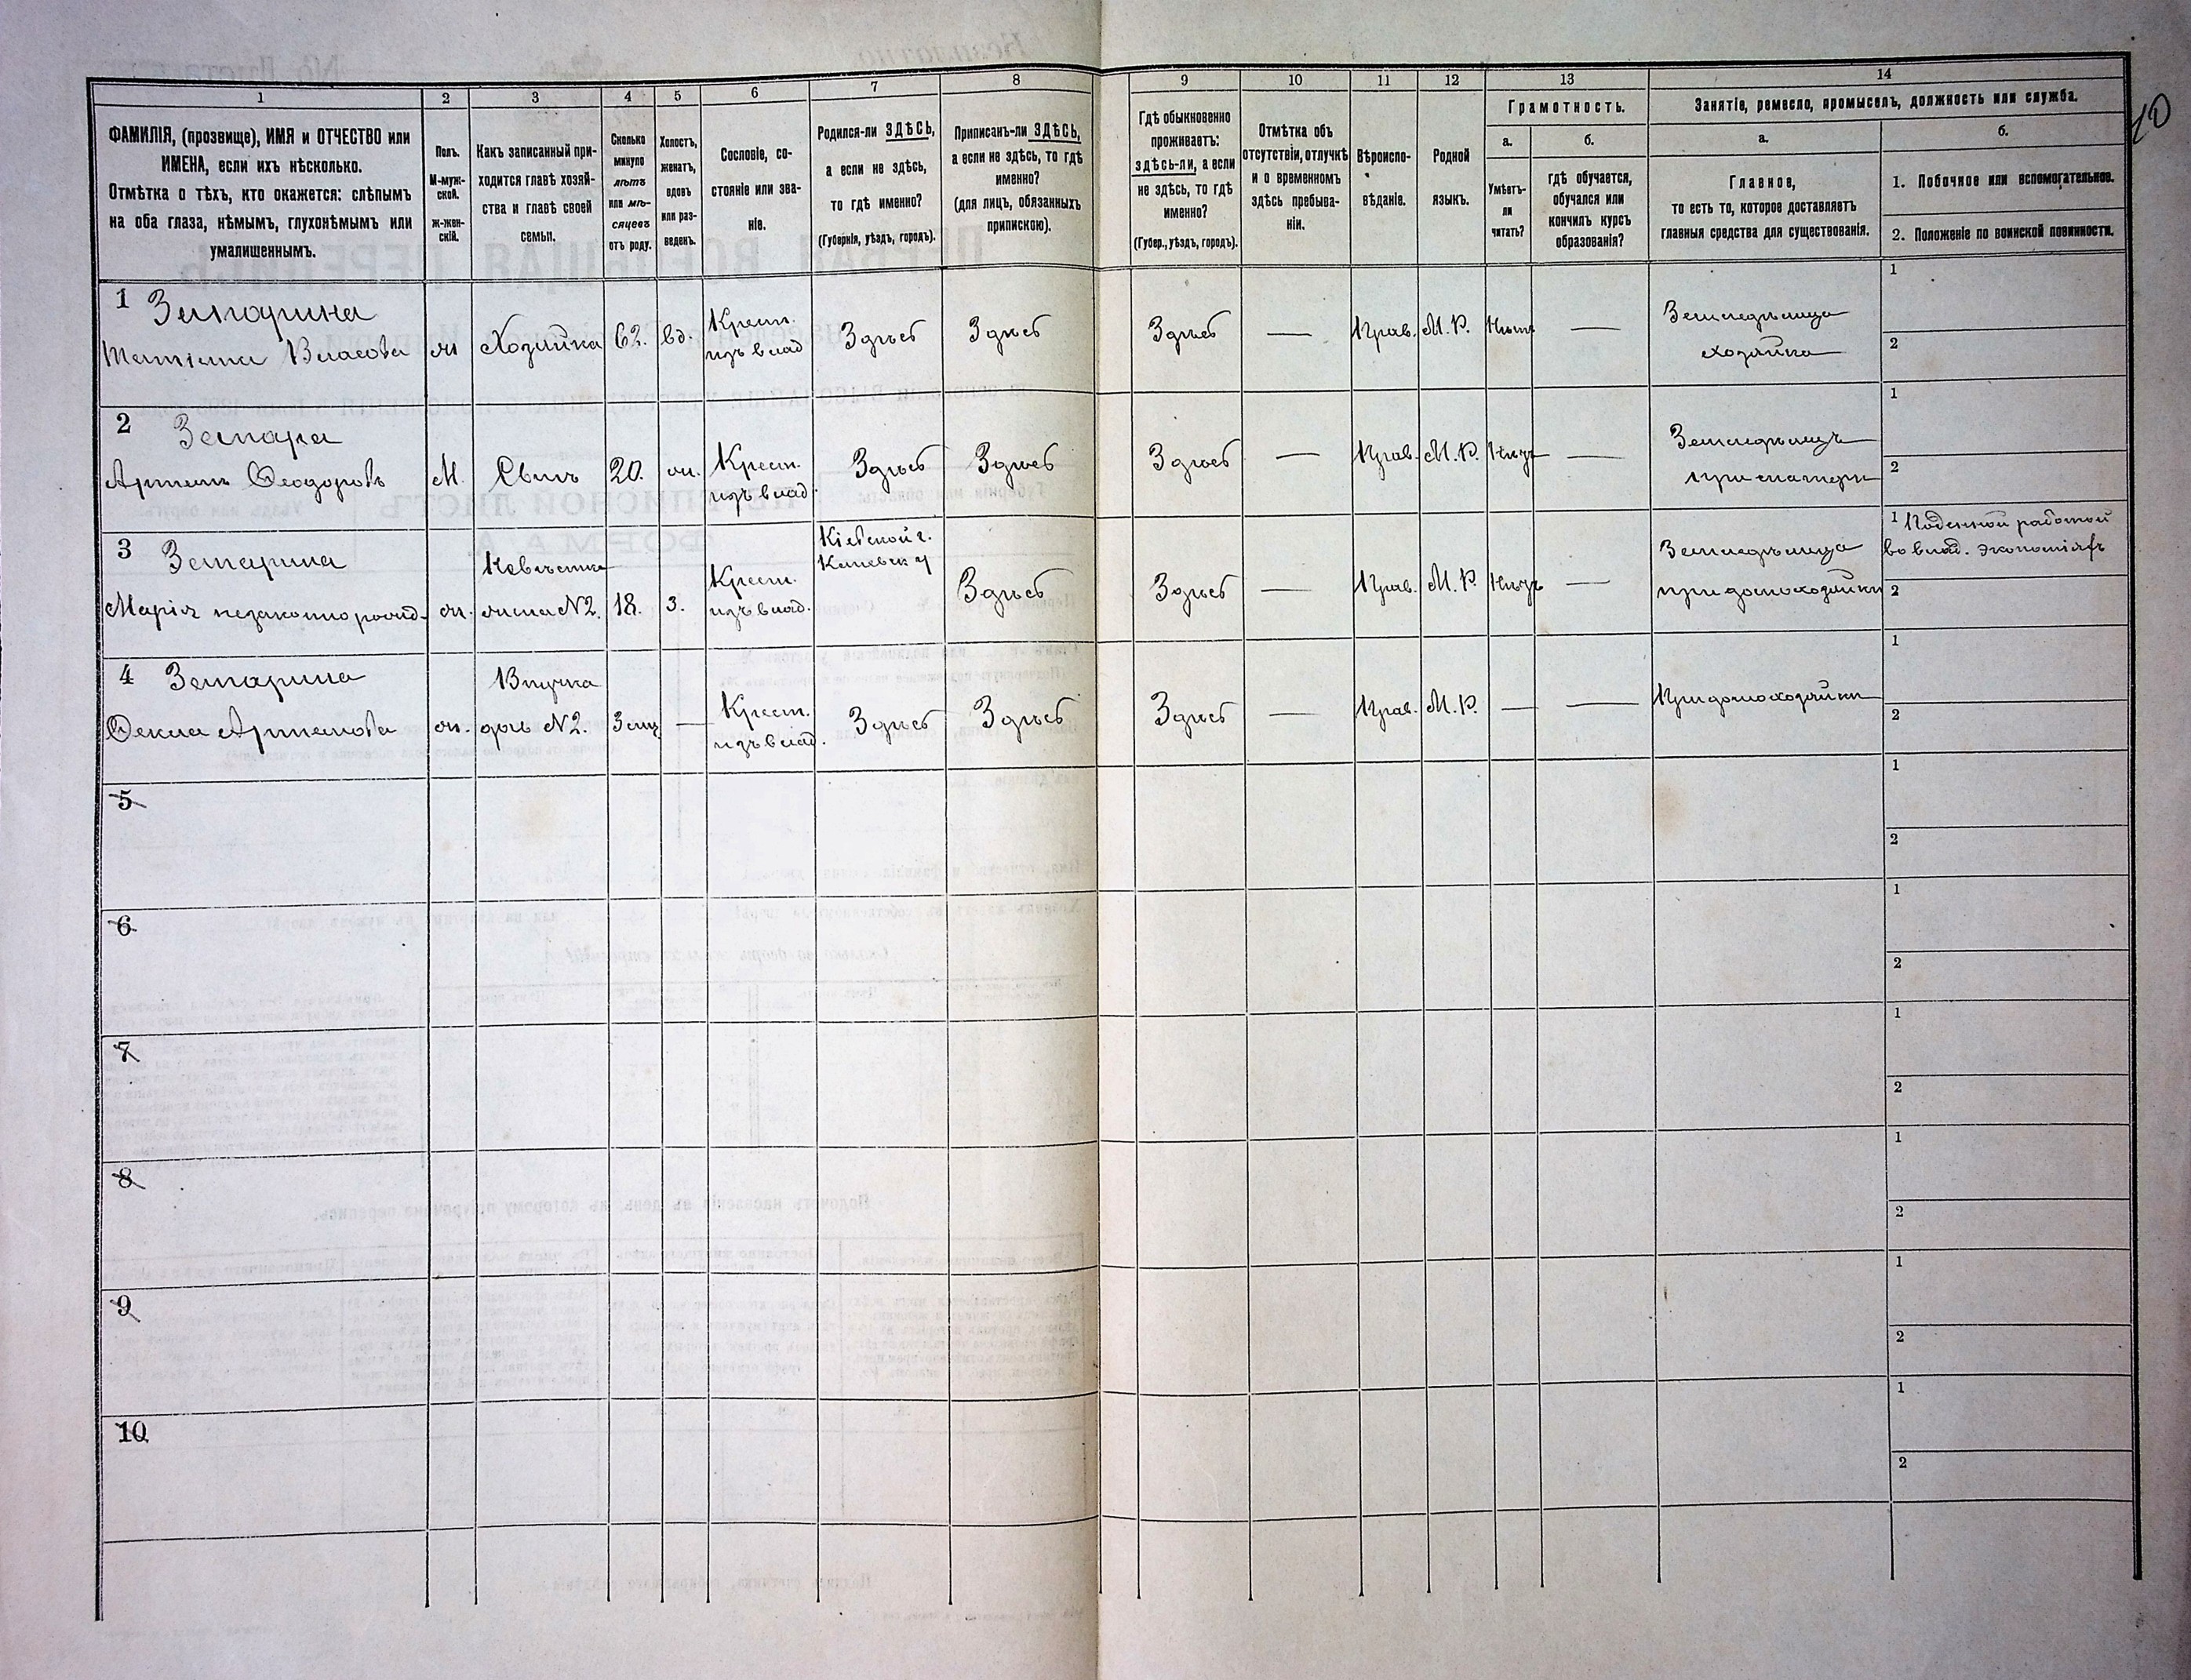 1
2
3
4
5
6
7
8
9
10
11
12
13
14
ФАМИЛІЯ, (прозвище), ИМЯ и ОТЧЕСТВО или
ИМЕНА, если ихъ нѣсколько.
Отмѣтка о тѣхъ, кто окажется: слѣпымъ
на оба глаза, нѣмымъ, глухонѣмымъ или
умалишеннымъ.
Полъ.
М-муж-
ской.
Ж-жен-
скій.
Какъ записанный при-
ходится главѣ хозяй-
ства и главѣ своей
семьи.
Сколько
минуло
лѣтъ
или мѣ-
сяцевъ
отъ роду.
Холостъ,
женатъ,
вдовъ
или раз-
веденъ.
Сословіе, со-
стояніе или зва-
ніе.
Родился-ли ЗДѢСЬ,
а если не здѣсь,
то гдѣ именно?
(Губернія, уѣздъ, городъ).
Приписанъ-ли ЗДѢСЬ,
а если не здѣсь, то гдѣ
именно?
(для лицъ, обязанныхъ
припискою).
Гдѣ обыкновенно
проживаетъ:
здѣсь-ли, а если
не здѣсь, то гдѣ
именно?
(Губер., уѣздъ, городъ).
Отмѣтка объ
отсутствіи, отлучкѣ
и о временномъ
здѣсь пребыва-
ніи.
Вѣроиспо-
вѣданіе.
Родной
языкъ.
Грамотность.
а.
Умѣетъ-
ли
читать?
б.
гдѣ обучается,
обучался или
кончилъ курсъ
образованія?
Занятіе, ремесло, промыселъ, должность или служба.
а.
Главное,
то есть то, которое доставляетъ
главныя средства для существованія.
б.
1. Побочное или вспомогательное.
2. Положеніе по воинской повинности.
1
Татіана Власова
ж
Хозяйка
62.
вд.
Крест.
изъ влад
Здѣсь
Здѣсь
Здѣсь
—
Прав.
М. Р.
Нѣтъ
—
Земледѣлица
хозяйка
1
2
2
Артемъ Ѳеодоровъ
М.
Сынъ
20.
ж.
Крест.
изъ влад.
Здѣсь
Здѣсь
Здѣсь
—
Прав.
М. Р.
—
Земледѣлецъ
при матери
1
2
3
Марія незаконнорожд.
ж.
Невѣстка
жена №2.
18.
з.
Крест.
изъ влад.
Кіевской г.
Каневск у
Здѣсь
Здѣсь
—
Прав.
М. Р.
—
Земледѣлица
при домохозяйкѣ
1 Поденной работой
во влад. экономіяхъ
2
4
Ѳекла Артемова
ж.
Внучка
дочь №2.
3 мц.
—
Крест.
изъ влад.
Здѣсь
Здѣсь
Здѣсь
—
Прав.
М. Р.
—
—
При домохозяйкѣ
1
2
5
1
2
6
1
2
7
1
2
8
1
2
9
1
2
10
1
2